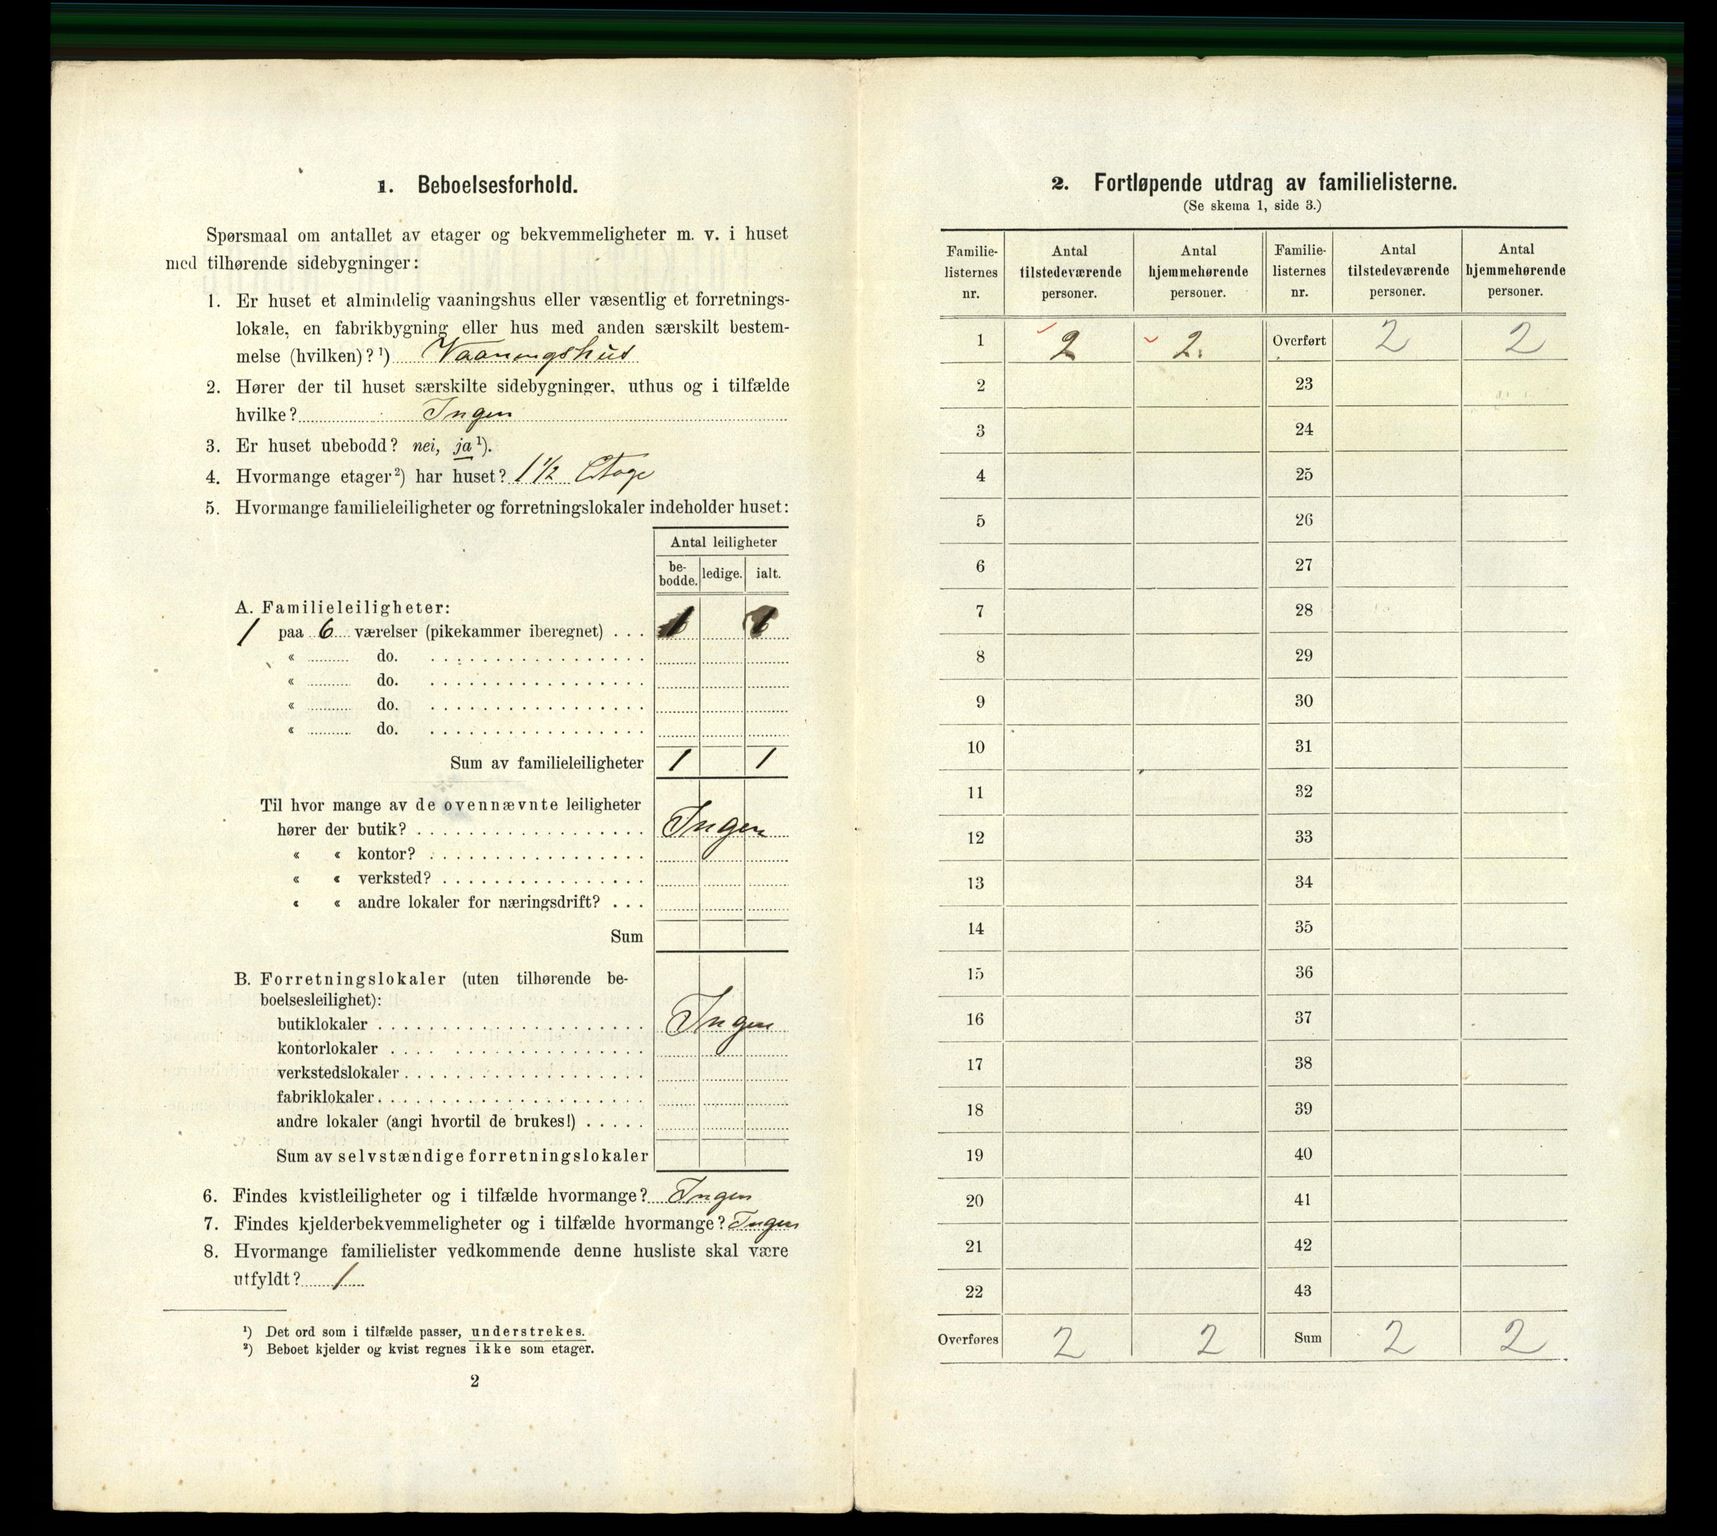 1. Beboelsesforhold.
Spørsmaal om antallet av etager og bekvemmeligheter m. v. i huset
med tilhørende sidebygninger:
1. Er huset et almindelig vaaningshus eller væsentlig et forretnings-
lokale, en fabrikbygning eller hus med anden særskilt bestem-
melse (hvilken)?¹) Vaaningshus
2. Hører der til huset særskilte sidebygninger, uthus og i tilfælde
hvilke? Ingen
3. Er huset ubebodd? nei, ja¹).
4. Hvormange etager²) har huset? 1½ Etage
5. Hvormange familieleiligheter og forretningslokaler indeholder huset:
Antal leiligheter
be-
bodde. ledige. ialt.
A. Familieleiligheter:
1 paa 6 værelser (pikekammer iberegnet) . . . 1 1
« do.
« do.
« do.
« do.
Sum av familieleiligheter 1 1
Til hvor mange av de ovennævnte leiligheter
hører der butik? Ingen
« « kontor?
« « verksted?
« « andre lokaler for næringsdrift? . . .
Sum
B. Forretningslokaler (uten tilhørende be-
boelsesleilighet):
butiklokaler Ingen
kontorlokaler
verkstedslokaler
fabriklokaler
andre lokaler (angi hvortil de brukes!)
Sum av selvstændige forretningslokaler
6. Findes kvistleiligheter og i tilfælde hvormange? Ingen
7. Findes kjelderbekvemmeligheter og i tilfælde hvormange? Ingen
8. Hvormange familielister vedkommende denne husliste skal være
utfyldt? 1
¹) Det ord som i tilfælde passer, understrekes.
²) Beboet kjelder og kvist regnes ikke som etager.
2
2. Fortløpende utdrag av familielisterne.
(Se skema 1, side 3.)
Familie- Antal Antal Familie- Antal Antal
listernes tilstedeværende hjemmehørende listernes tilstedeværende hjemmehørende
nr. personer. personer. nr. personer. personer.
1 2 2. Overført 2 2
2 23
3 24
4 25
5 26
6 27
7 28
8 29
9 30
10 31
11 32
12 33
13 34
14 35
15 36
16 37
17 38
18 39
19 40
20 41
21 42
22 43
Overføres 2 2 Sum 2 2